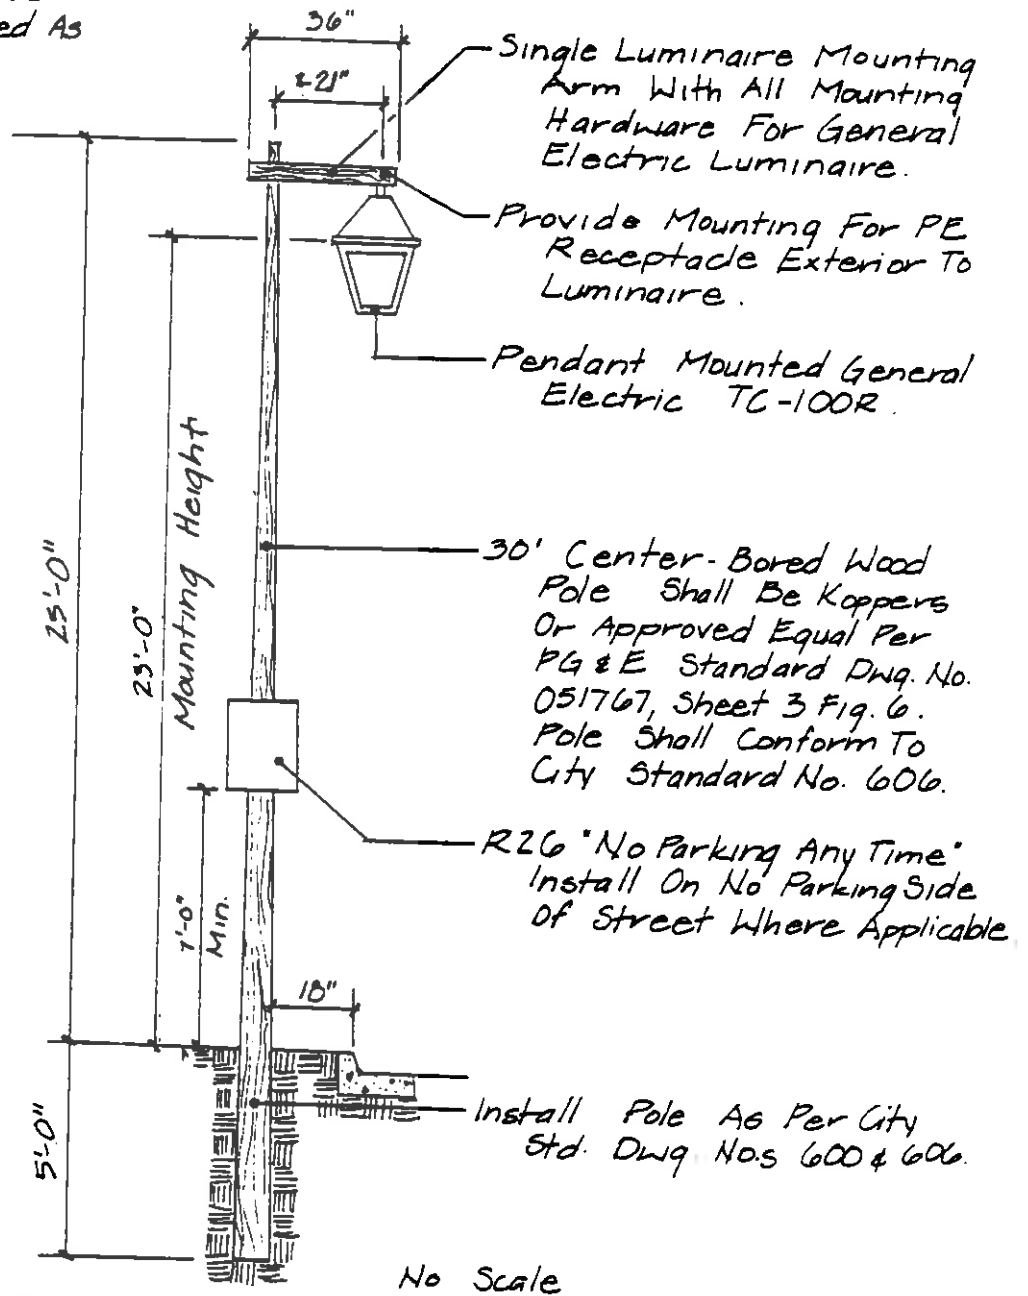 ed As
36"
±21"
Single Luminaire Mounting
Arm With All Mounting
Hardware For General
Electric Luminaire.
Provide Mounting For PE
Receptacle Exterior To
Luminaire.
Pendant Mounted General
Electric TC-100R.
25'-0"
23'-0"
Mounting Height
30' Center-Bored Wood
Pole Shall Be Koppers
Or Approved Equal Per
PG & E Standard Dwg. No.
051767, Sheet 3 Fig. 6.
Pole Shall Conform To
City Standard No. 606.
R26 "No Parking Any Time"
Install On No Parking Side
Of Street Where Applicable
7'-0"
Min.
18"
5'-0"
Install Pole As Per City
Std. Dwg. No.s 600 & 606.
No Scale